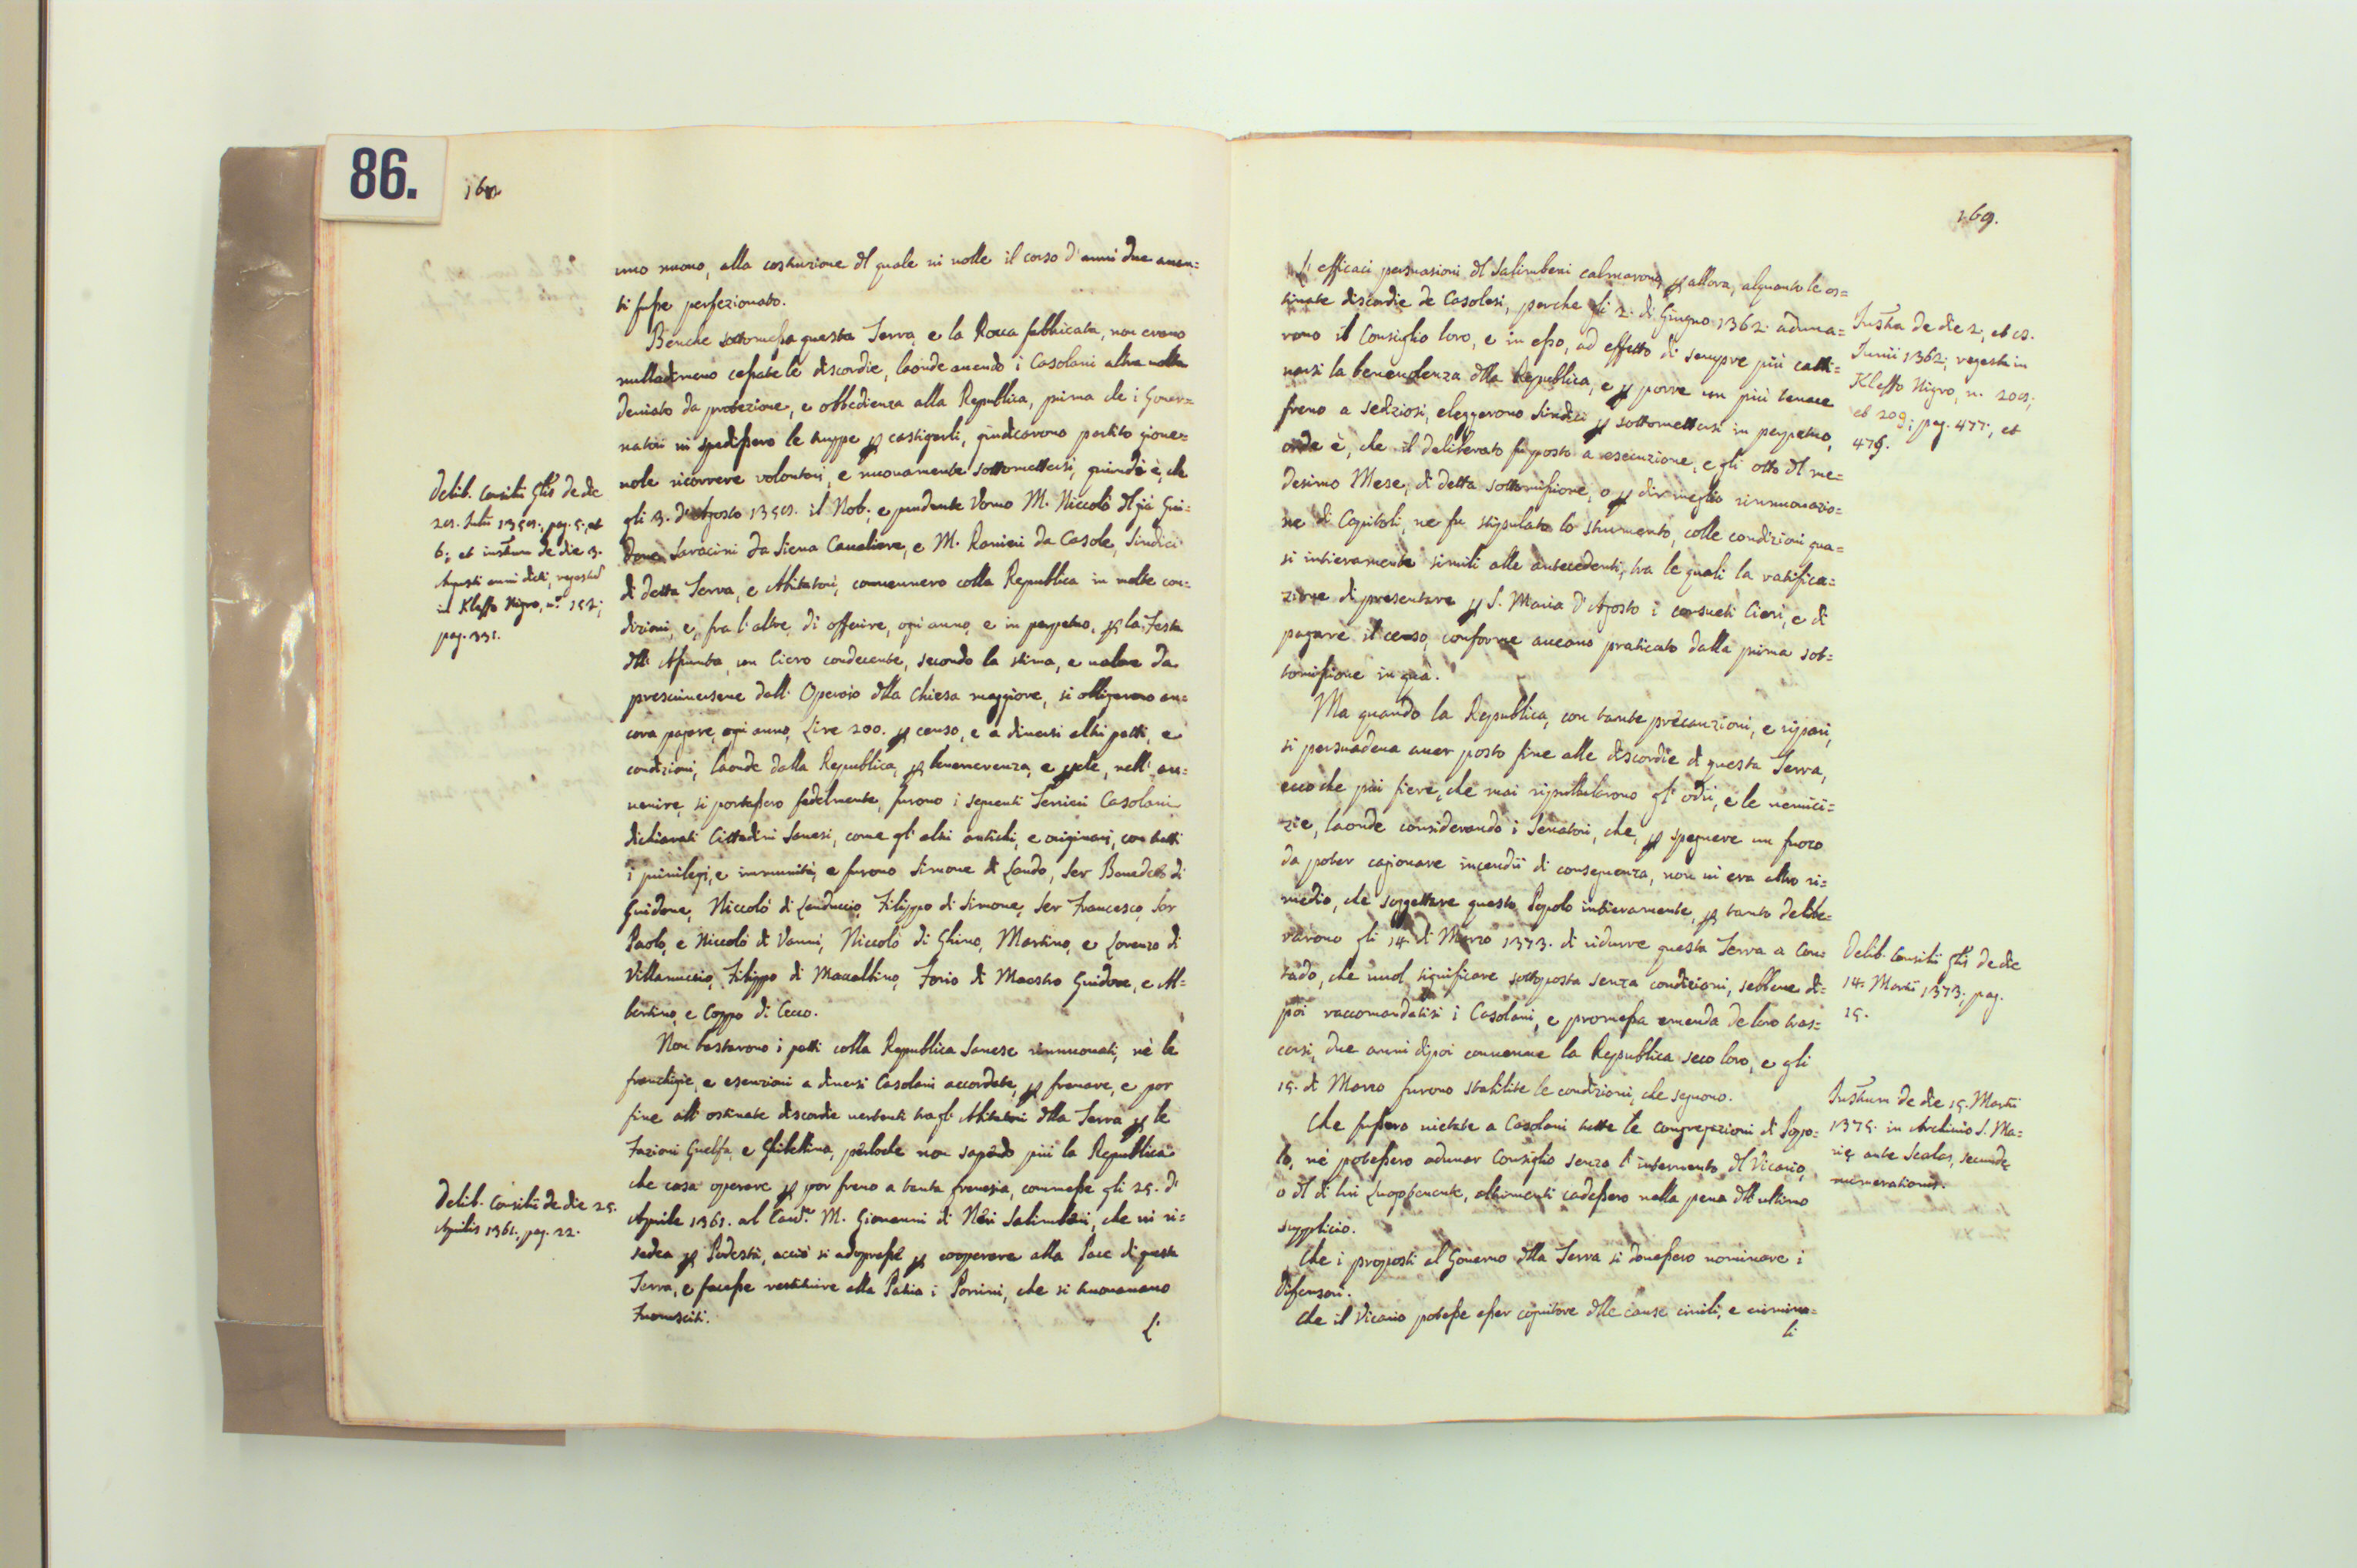 86.
168
uno nuouo, alla costruzione dl quale ui uolle il corso d'anni due auan=
ti fusse perfezionato.
Benche sottomessa questa Terra, e la Rocca fabbricata, non erano
nulladimeno cessate le discordie, laonde auendo i Casolani altra uolta
deuiato da protezione, e obbedienza alla Republica, prima che i Gouer=
natori ui spedissero le truppe p castigarli, giudicarono partito gioue=
uole ricorrere volontari, e nuouamente sottomettersi, quindi è, che
gli 3. d'Agosto 1359. il Nob: e prudente Vomo M. Niccolò dl già Gui=
done Saracini da Siena Caualiere, e M. Ranieri da Casole, Sindici
di detta Terra, e Abitatori, conuennero colla Republica in molte con=
dizioni, e, fra l'altre, di offerire, ogni anno, e in perpetuo, p la Festa
dll' Assunta, un Ciero condecente, secondo la stima, e ualore da
prescriuersene dall' Operaio dlla Chiesa maggiore, si obligarono an=
cora pagare, ogni anno, Lire 200. p censo, e a diuersi altri patti, e
condizioni, laonde dalla Republica, p beneuerenza, e pche, nell' au=
uenire, si portassero fedelmente, furono i seguenti Terrieri Casolani
dichiarati Cittadini Sanesi, come gl' altri antichi, e originari, con tutti
i priuilegi, e immunità, e furono Simone di Lando, Ser Benedetto di
Guidone, Niccolò di Landuccio, Filippo di Simone, Ser Francesco, Ser
Paolo, e Niccolò di Vanni, Niccolò di Ghino, Martino, e Lorenzo di
Villanuccio, Filippo di Maccallino, Forio di Maestro Guidone, e Al=
bertino, e Coppo di Cecco.
Non bastarono i patti colla Republica Sanese rinnuouati, nè le
franchigie, e esenzioni a diuersi Casolani accordate, p frenare, e por
fine all' ostinate discordie uertenti tra gli Abitatori dlla Terra p le
Fazioni Guelfa, e Ghibellina, perloche non sapendo più la Republica
che cosa operare p por freno a tanta frenesia, commesse gli 25. d'
Aprile 1361. al Caud.re M. Giouanni di Neri Salimbeni, che ui ri=
sedea p Podestà, acciò si adoprasse p cooperare alla Pace di questa
Terra, e facesse restituire alla Patria i Porrini, che si trouauano
Fuorusciti.
L'
Delib. Consilii Glis de die
29. Julii 1359., pag. 5., et
6; et instrum de die 3.
Augusti anni dicti, regestũ
in Kleffo Nigro, n.º 152;
pag. 331.
Delib. Consilii de die 25.
Aprilis 1361. pag. 22.
169.
L' efficaci persuasioni dl Salimbeni calmarono, p allora, alquanto le os=
tinate discordie de Casolesi, perche gli 2. di Giugno 1362. aduna=
rono il Consiglio loro, e in esso, ad effetto di sempre più catti=
uarsi la beneuolenza dlla Republica, e p porre un più tenace
freno a sediziosi, elessero Sindici p sottomettersi in perpetuo,
onde è, che il deliberato fu posto a esecuzione, e gli otto dl me=
desimo Mese, di detta sottomissione, o p dir meglio rinnuouazio=
ne di Capitoli, ne fu stipulato lo strumento, colle condizioni qua=
si intieramente simili alle antecedenti, tra le quali la ratifica=
zione di presentare p S. Maria d'Agosto i consueti Cieri, e di
pagare il censo, conforme aueano praticato dalla prima sot=
tomissione in quà.
Ma quando la Republica, con tante precauzioni, e ripari,
si persuadeua auer posto fine alle discordie di questa Terra,
ecco che più fiere, che mai ripullularono gl' odi, e le nemici=
zie, laonde considerando i Senatori, che, p spegnere un fuoco
da poter cagionare incendii di conseguenza, non ui era altro ri=
medio, che soggettare questo Popolo intieramente, p tanto delibe=
rarono gli 14. di Marzo 1373. di ridurre questa Terra a Con=
tado, che uuol significare sottoposta senza condizioni, sebbene di=
poi raccomandatisi i Casolani, e promessa emenda de loro tras=
corsi, due anni dipoi conuenne la Republica seco loro, e gli
15. di Marzo furono stabilite le condizioni, che seguono.
Che fussero uietate a Casolani tutte le congregazioni di Popo=
lo, nè potessero adunar Consiglio senza l' interuento dl Vicario,
o dl di lui Luogotenente, altrimenti cadessero nella pena dll' ultimo
supplicio.
Che i proposti al Gouerno dlla Terra si douessero nominare i
difensori.
Che il Vicario potesse esser cognitore dlle cause ciuili, e crimina=
li
Instra de die 2, et 8.
Junii 1362; regesta in
Kleffo Nigro, n. 208;
et 209; pag. 477., et
479.
Delib. Consilii Glis de die
14. Martii 1373, pag.
15.
Instrum de die 15. Martii
1375. in Archiuio S. Ma=
rię ante Scalas, secundę
numerationis.